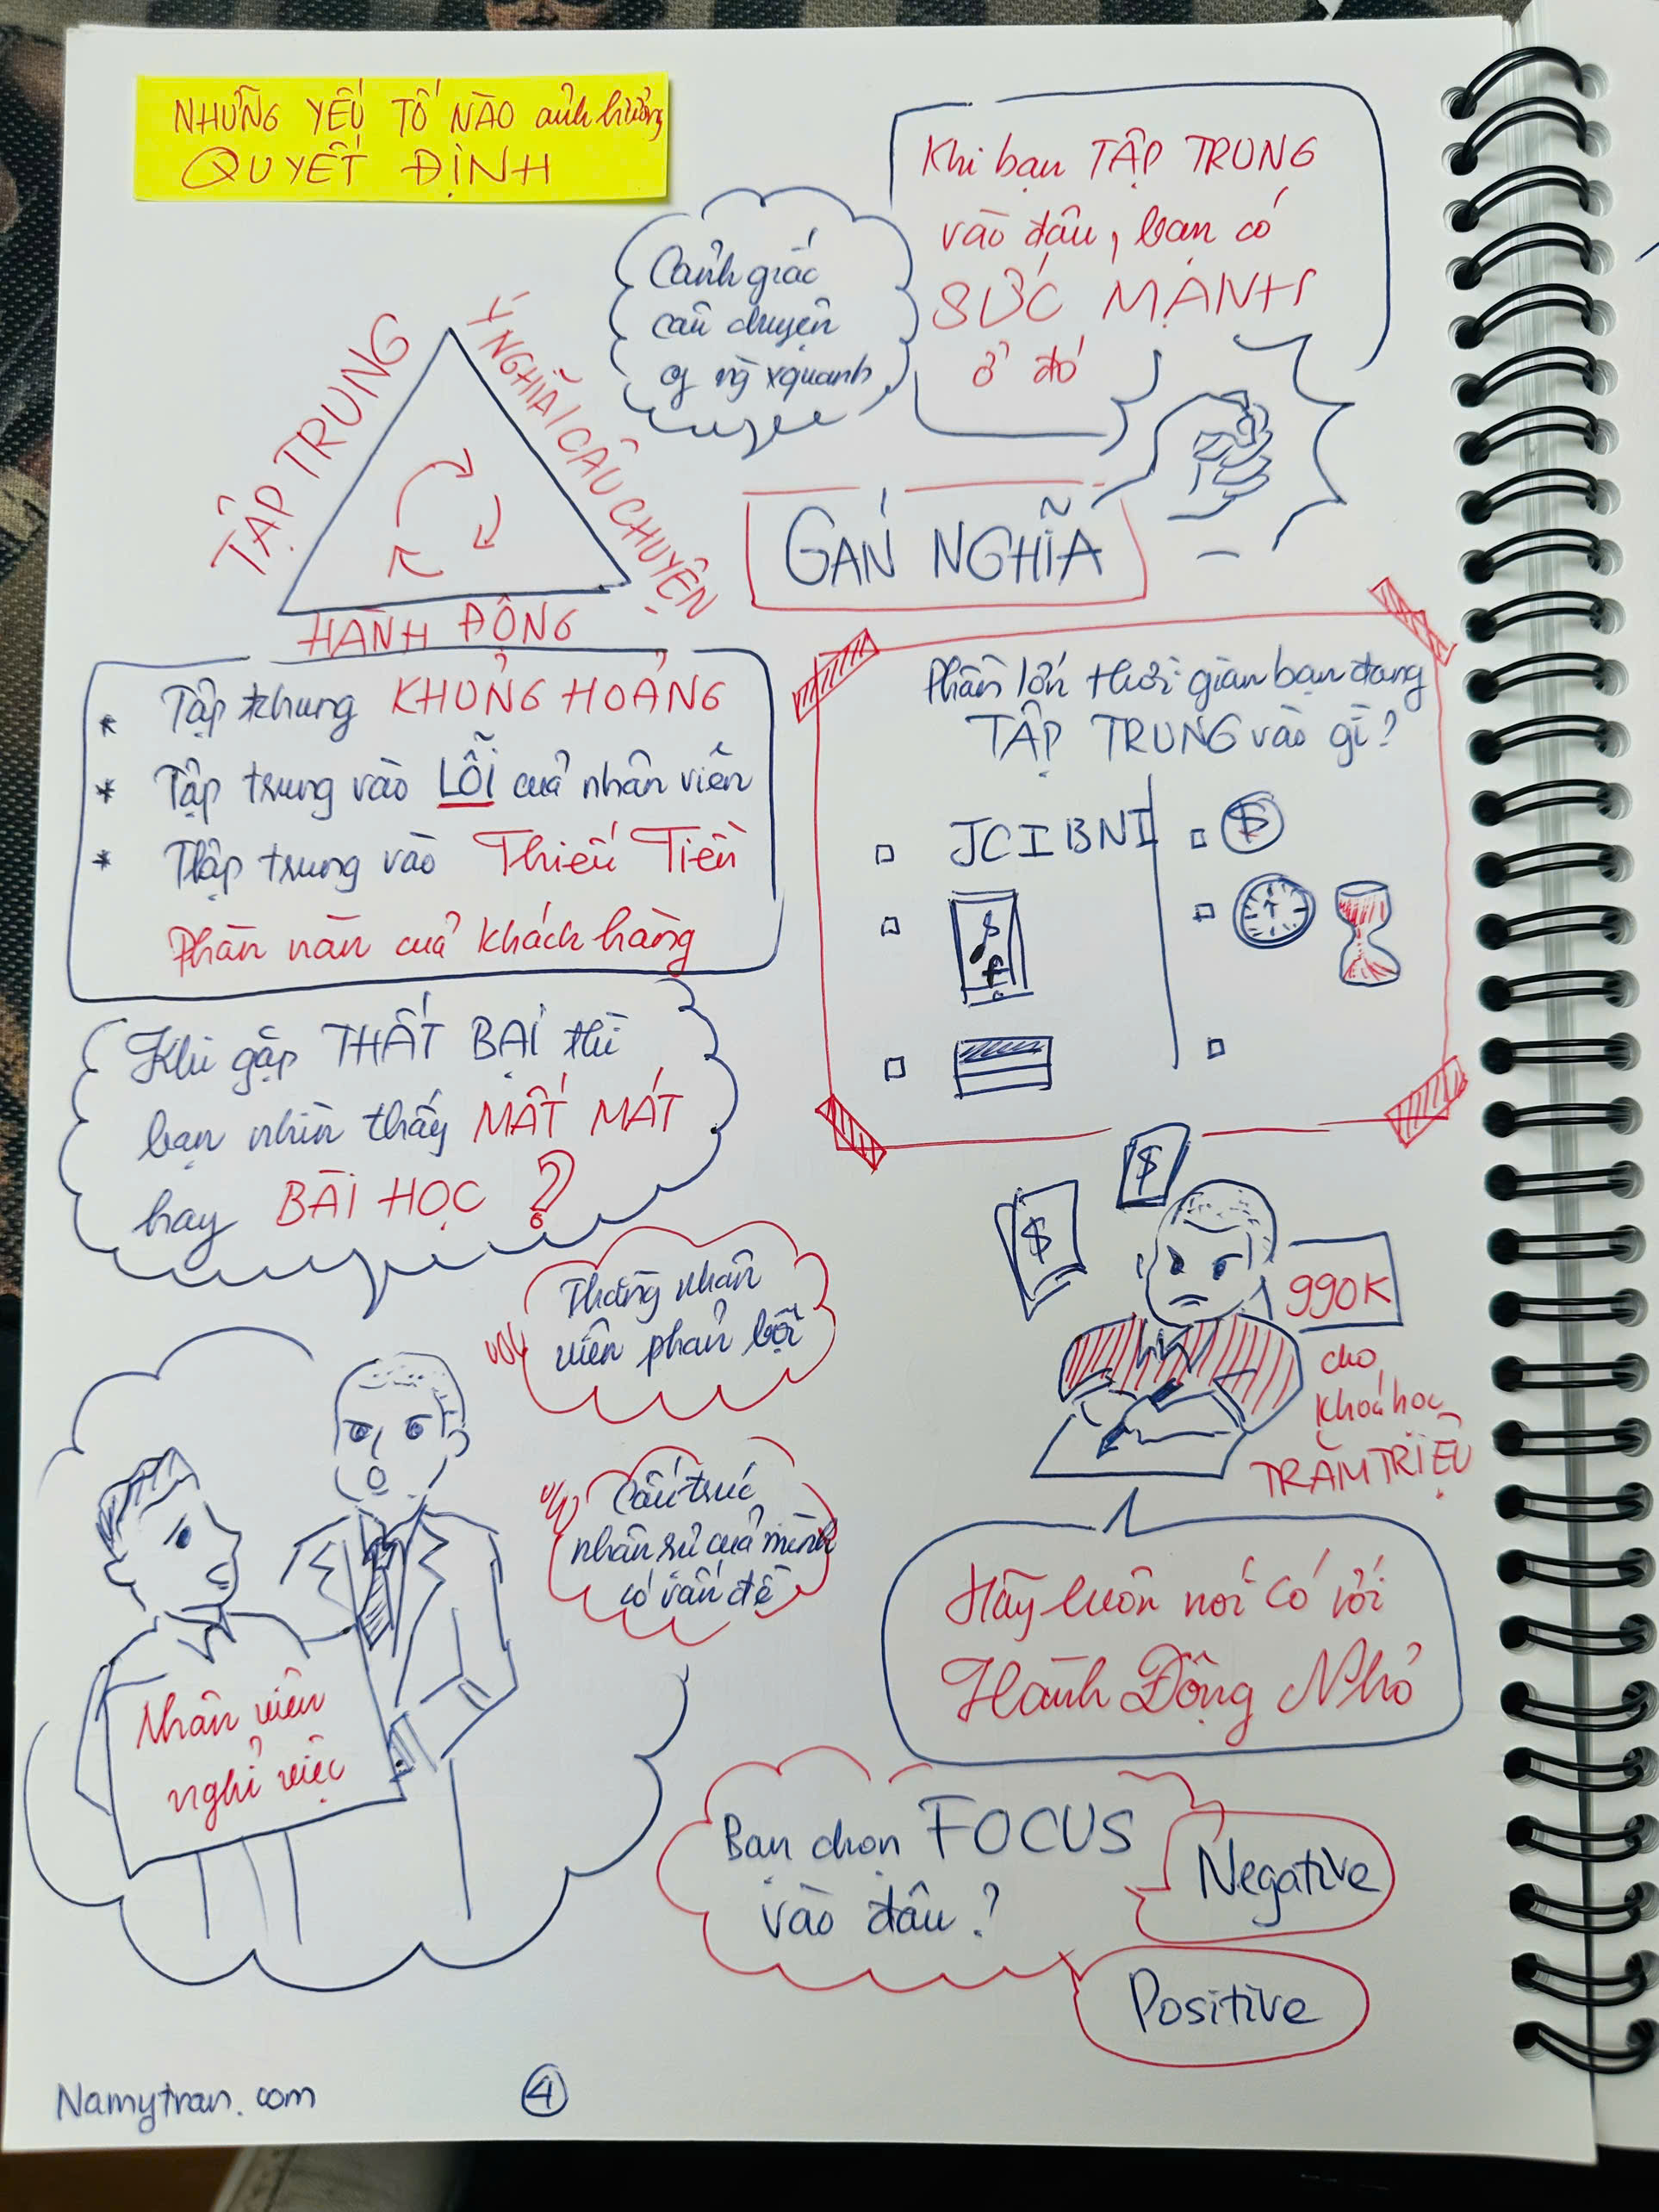 NHỮNG YẾU TỐ NÀO ảnh hưởng
QUYẾT ĐỊNH
Khi bạn TẬP TRUNG
vào đâu, bạn có
SỨC MẠNH
ở đó
Cảnh giác
câu chuyện
xquanh
TẬP TRUNG
Ý NGHĨA/CÂU CHUYỆN
HÀNH ĐỘNG
GÁN NGHĨA
* Tập trung KHỦNG HOẢNG
* Tập trung vào LỖI của nhân viên
* Tập trung vào Thiếu Tiền
Phàn nàn của khách hàng
Phần lớn thời gian bạn đang
TẬP TRUNG vào gì?
JCI BNI
$
f
Khi gặp THẤT BẠI thì
bạn nhìn thấy MẤT MÁT
hay BÀI HỌC ?
Thằng nhân
viên phản bội
Cấu trúc
nhân sự của mình
có vấn đề
Nhân viên
nghỉ việc
$
$
990K
cho
khoá học
TRĂM TRIỆU
Hãy luôn nói có với
Hành Động Nhỏ
Bạn chọn FOCUS
vào đâu?
Negative
Positive
Namytran.com
4